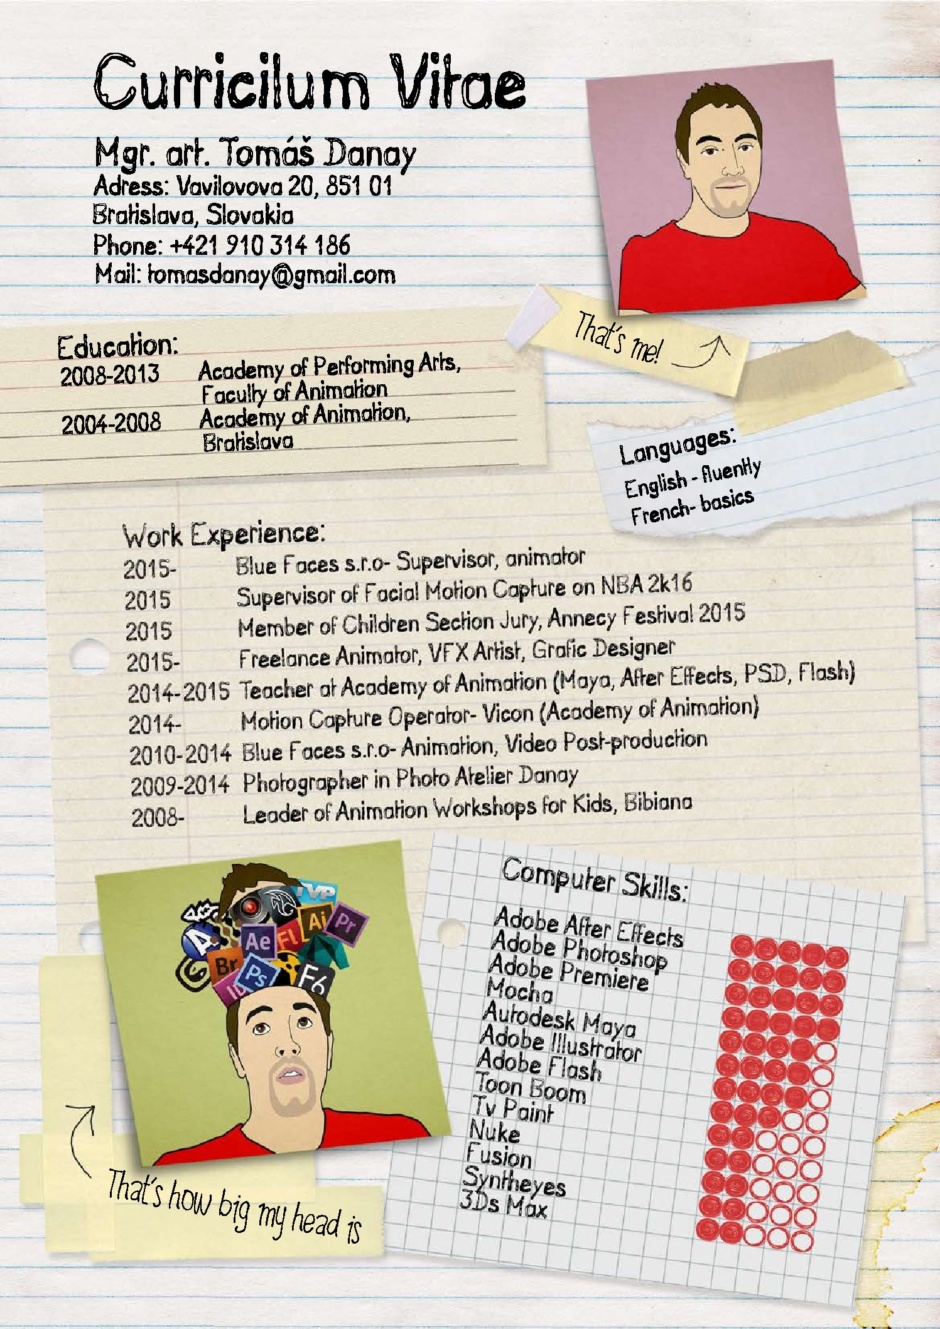 Curricilum Vitae
Mgr. art. Tomáš Danay
Adress: Vavilovova 20, 851 01
Bratislava, Slovakia
Phone: +421 910 314 186
Mail: tomasdanay@gmail.com
That's me!
Education:
2008-2013 Academy of Performing Arts,
Faculty of Animation
2004-2008 Academy of Animation,
Bratislava
Languages:
English - fluently
French- basics
Work Experience:
2015- Blue Faces s.r.o- Supervisor, animator
2015 Supervisor of Facial Motion Capture on NBA 2k16
2015 Member of Children Section Jury, Annecy Festival 2015
2015- Freelance Animator, VFX Artist, Grafic Designer
2014-2015 Teacher at Academy of Animation (Maya, After Effects, PSD, Flash)
2014- Motion Capture Operator- Vicon (Academy of Animation)
2010-2014 Blue Faces s.r.o- Animation, Video Post-production
2009-2014 Photographer in Photo Atelier Danay
2008- Leader of Animation Workshops for Kids, Bibiana
TVP
Ai
Pr
Ae
Fl
Br
Ps
ID
F6
That's how big my head is
Computer Skills:
Adobe After Effects
Adobe Photoshop
Adobe Premiere
Mocha
Autodesk Maya
Adobe Illustrator
Adobe Flash
Toon Boom
Tv Paint
Nuke
Fusion
Syntheyes
3Ds Max